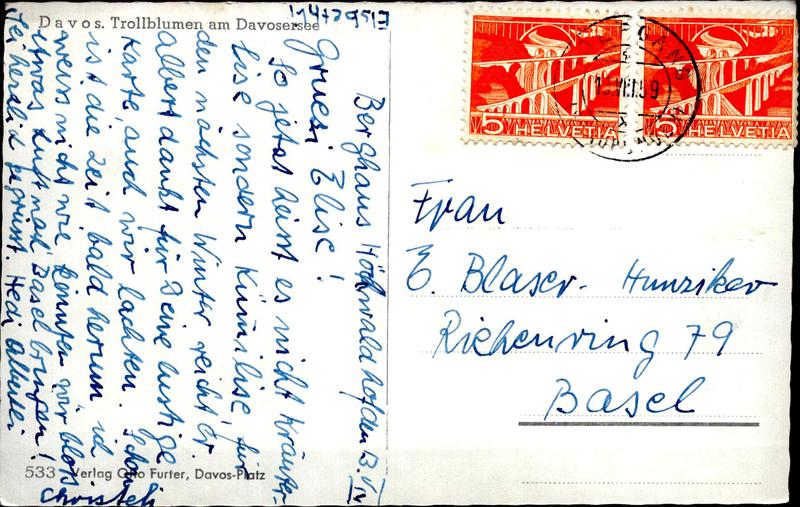 Davos. Trollblumen am Davosersee
Elsbethli
Berghaus Höhwald
Gruezi Elise!
So jetzt heisst es nicht Kräuter-
lise sondern Kümilise, für
den nächsten Winter reicht er.
Albert dankt für Deine lustige
Karte, auch wir lachten. Schon
ist die Zeit bald herum, ich
weiss nicht wie könnten wir bloss
etwas Luft nach Basel bringen!
Sei herzlich gegrüsst. Hedi Albertli
Christeli
533 Verlag Otto Furter, Davos-Platz
5 HELVETIA
5 HELVETIA
Frau
E. Blaser-Hunziker
Riehenring 79
Basel